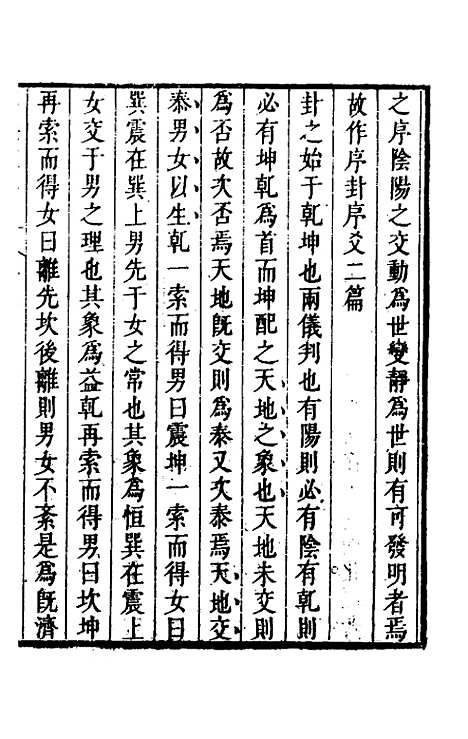 之序陰陽之交動為世變靜為世則有可發明者焉
故作序卦序爻二篇
卦之始于乾坤也兩儀判也有陽則必有陰有乾則
必有坤乾為首而坤配之天地之象也天地未交則
為否故次否焉天地既交則為泰又次泰焉天地交
泰男女以生乾一索而得男曰震坤一索而得女曰
巽震在巽上男先于女之常也其象為恒巽在震上
女交于男之理也其象為益乾再索而得男曰坎坤
再索而得女曰離先坎後離則男女不紊是為既濟